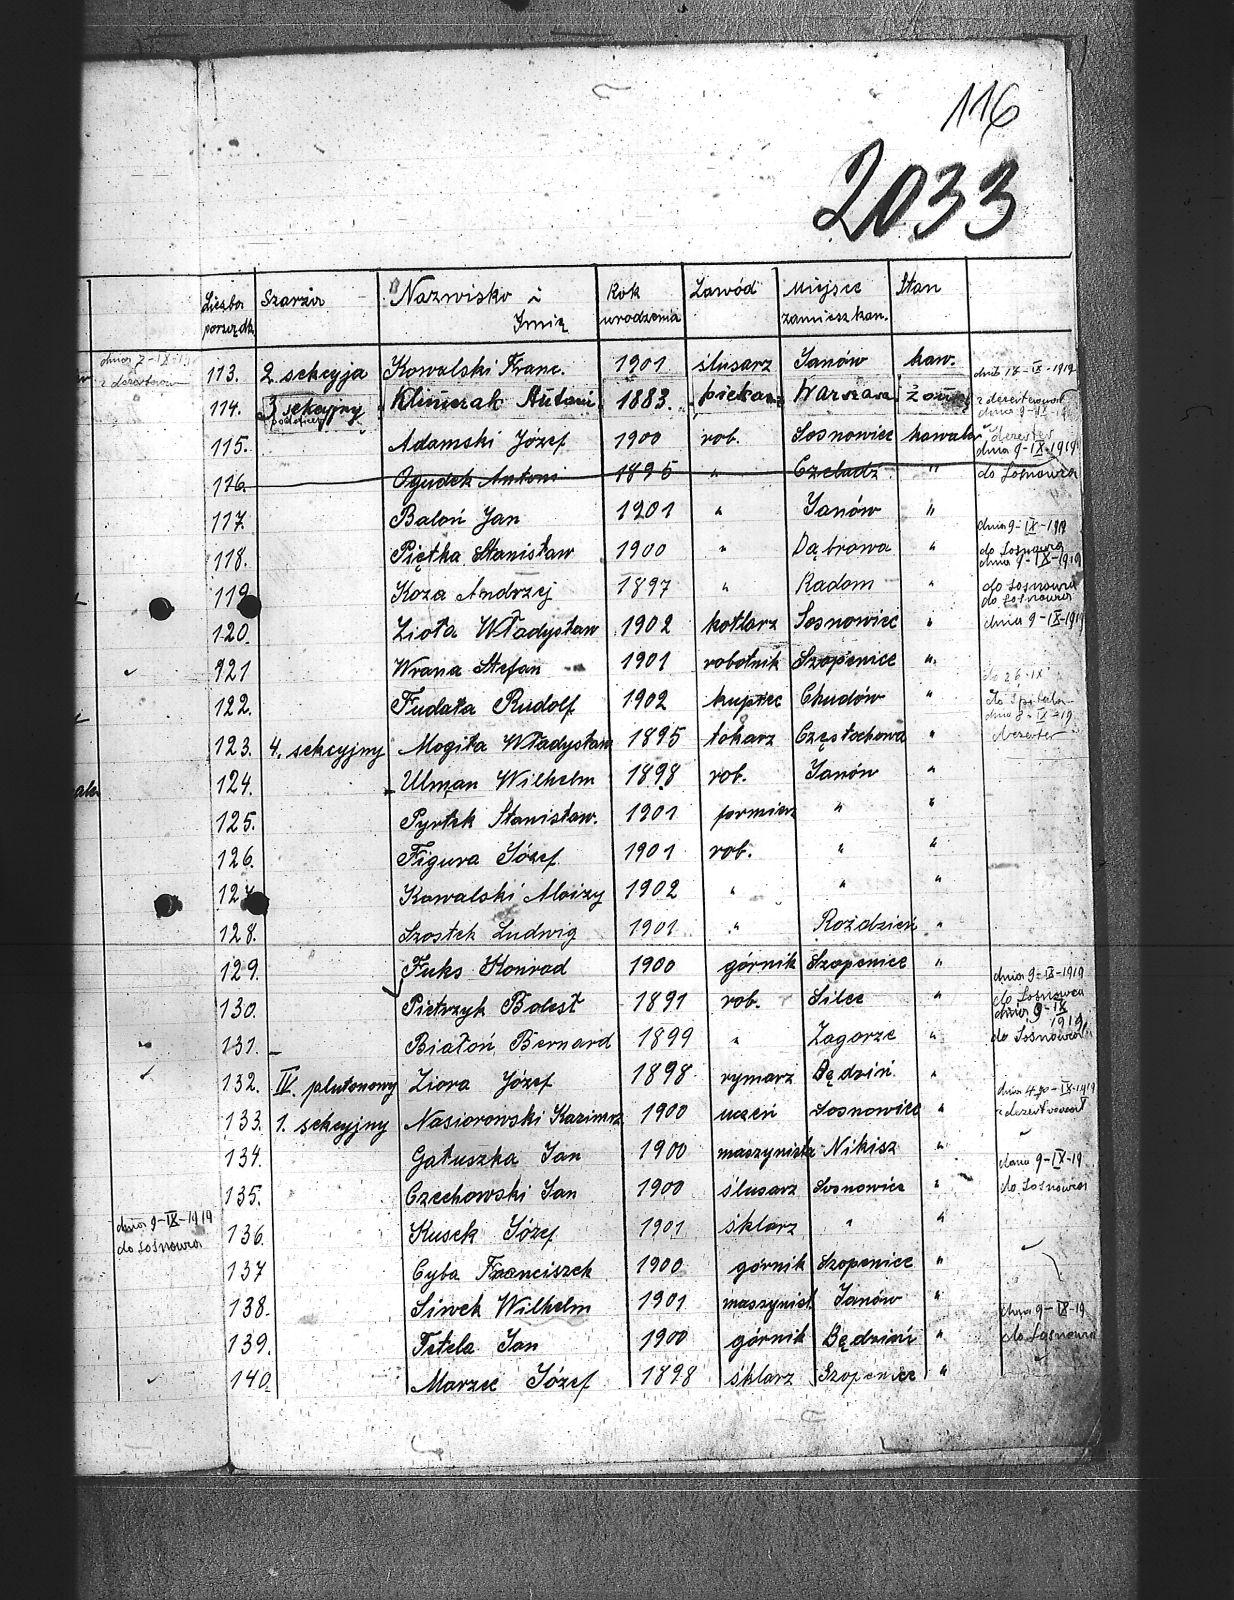 116
2033
Liczba porządk. Szarża Nazwisko i Imię Rok urodzenia Zawód Miejsce zamieszkan. Stan
113. 2 sekcyja Kowalski Franc. 1901 ślusarz Janów kaw.
114. 3 sekcyjny Klimczak Antoni 1883. piekarz Warszawa
115. Adamski Józef 1900 rob. Sosnowiec kawaler dezerter dnia 9-IX-1919
116. Ogudek Antoni 1895 " Czeladź " do Sosnowca
117. Baloń Jan 1901 " Janów "
118. Piętka Stanisław 1900 " Dąbrowa " dnia 9-IX-1919 do Sosnowca
119. Koza Andrzej 1897 " Radom " dnia 9-IX-1919 do Sosnowca
120. Ziota Władysław 1902 kotlarz Sosnowiec " do Sosnowca dnia 9-IX-1919
121 Wrana Stefan 1901 robotnik Szopenice "
122. Fudała Rudolf 1902 kupiec Chudów "
123. 4. sekcyjny Mogiła Władysław 1895 tokarz Częstochowa " dezerter
124. Ulman Wilhelm 1898 rob. Janów "
125. Pyrtek Stanisław. 1901 formierz " "
126. Figura Józef 1901 rob. " "
127. Kowalski Aloizy 1902 " " "
128. Szostek Ludwig 1901 " Roździeń "
129. Fuks Konrad 1900 górnik Szopenice " dnia 9-IX-1919
130. Pietrzyk Bolesł 1891 rob. Silce " do Sosnowca dnia 9-IX 1919
131. Białoń Bernard 1899 " Zagorze " do Sosnowca
132. IV. plutonowy Ziora Józef 1898 rymarz Będziń "
133. 1. sekcyjny Nasiorowski Kazimrz 1900 uczeń Sosnowiec "
134. Gałuszka Jan 1900 maszynista Nikisz " dnia 9-IX-19
135. Czechowski Jan 1900 ślusarz Sosnowice " do Sosnowca
dnia 9-IX-1919
do Sosnowca
136. Kusek Józef 1901 śklarz " "
137 Cyba Franciszek 1900 górnik Szopenice "
138. Siwek Wilhelm 1901 maszynist Janów "
139. Tetela Jan 1900 górnik Będziń " dnia 9-IX-19 do Sosnowca
140. Marzec Józef 1898 śklarz Szopenice "